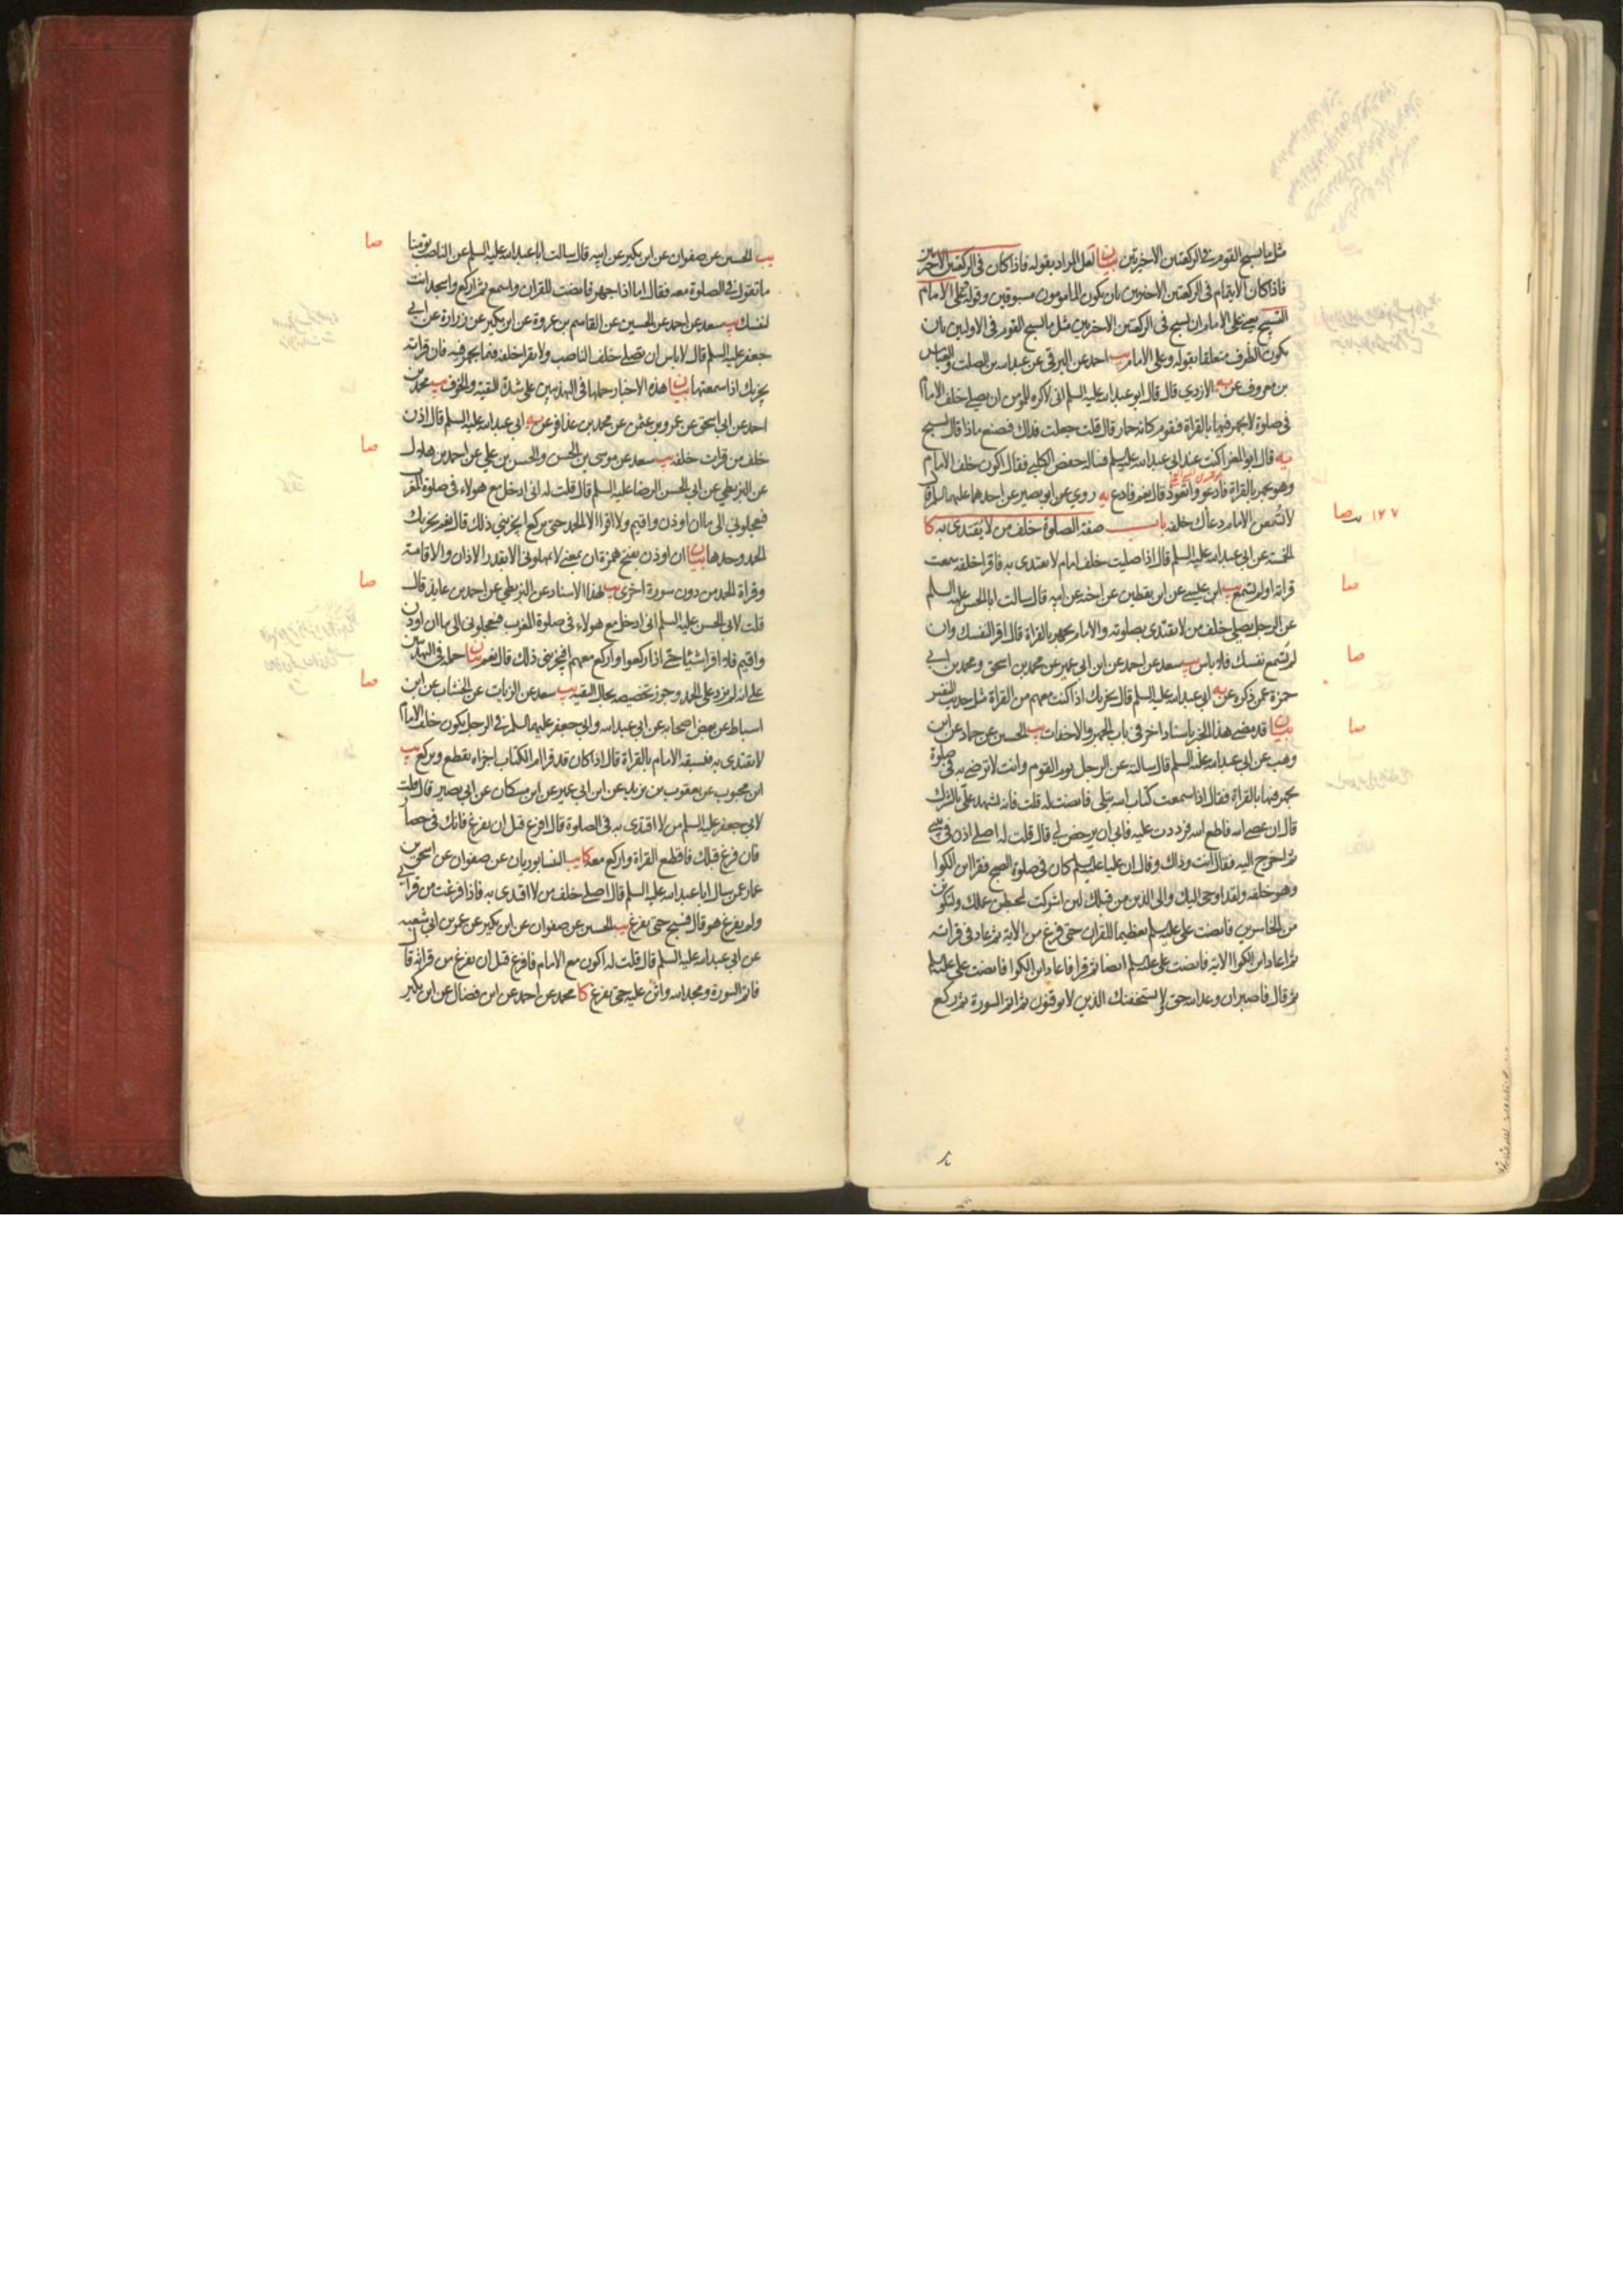 مثل ما يسبح القوم في الركعتين الاخيرتين بيان لعل المراد بقوله فاذا كان في الركعتين الاخيرتين
فاذا كان الايتمام في الركعتين الاخيرتين بان يكون المامومون مسبوقين وقوله على الامام
التسبيح يعني على الامام ان يسبح في الركعتين الاخيرتين مثل ما يسبح القوم في الاوليين بان
يكون الظرف متعلقا بقوله وعلى الامام يب احمد عن البرقي عن عبد الله بن الصلت والعباس
بن معروف عن الازدي قال قال ابو عبد الله عليه السلم اني لاكره للمومن ان يصلي خلف الامام
في صلوة لا يجهر فيها بالقراة فيقوم كانه حمار قال قلت جعلت فداك فيصنع ماذا قال يسبح
يه قال ابو المغرا كنت عند ابي عبد الله عليه السلم فساله حفص الكلبي فقال اكون خلف الامام
وهو يجهر بالقراة فادعو واتعوذ قال نعم فادع يه روي عن ابو بصير عن احدهما عليهما السلم قال
لا تسمعن الامام دعاك خلفه باب صفة الصلوة خلف من لا يقتدى به كا
الخمسة عن ابي عبد الله عليه السلم قال اذا صليت خلف امام لا يقتدى به فاقرا خلفه سمعت
قراته او لم تسمع يب ابن عيسى عن ابن يقطين عن اخيه عن ابيه قال سالت ابا الحسن عليه السلم
عن الرجل يصلي خلف من لا يقتدى بصلوته والامام يجهر بالقراة قال اقرا لنفسك وان
لم تسمع نفسك فلا باس يب سعد عن احمد عن ابن ابي عمير عن محمد بن اسحق ومحمد بن ابي
حمزة عمن ذكره عن ابي عبد الله عليه السلم قال يجزيك اذا كنت معهم من القراة مثل حديث النفس
بيان قد مضى هذا الخبر باسناد اخر في باب الجهر والاخفات يب الحسين عن حماد عن ابن
وهب عن ابي عبد الله عليه السلم قال سالته عن الرجل يوم القوم وانت لا ترضى به في صلوة
يجهر فيها بالقراة فقال اذا سمعت كتاب الله يتلى فانصت له قلت فانه يشهد علي بالشرك
قال ان عصى الله فاطع الله فرددت عليه فابى ان يرخص لي قال قلت له اصلي اذن في بيتي
ثم اخرج اليه فقال انت وذاك وقال ان عليا عليه السلم كان في صلوة الصبح فقرا ابن الكوا
وهو خلفه ولقد اوحى اليك والى الذين من قبلك لئن اشركت ليحبطن عملك ولتكونن
من الخاسرين فانصت علي عليه السلم تعظيما للقران حتى فرغ من الاية ثم عاد في قراته
ثم اعاد ابن الكوا الاية فانصت علي عليه السلم ايضا ثم قرا فاعاد ابن الكوا فانصت علي عليه السلم
ثم قال فاصبر ان وعد الله حق ولا يستخفنك الذين لا يوقنون ثم اتم السورة ثم ركع
١٢٧
صا
صا
صا
صا
يب الحسين عن صفوان عن ابن بكير عن ابيه قال سالت ابا عبد الله عليه السلم عن الناصب يؤمنا
ما تقول في الصلوة معه فقال اما اذا جهر فانصت للقران واسمع ثم اركع واسجد انت
لنفسك يب سعد عن احمد عن الحسين عن القاسم بن عروة عن ابن بكير عن زرارة عن ابي
جعفر عليه السلم قال لا باس ان تصلي خلف الناصب ولا تقرا خلفه فيما يجهر فيه فان قراته
يجزيك اذا سمعتها بيان هذه الاخبار حملها في التهذيبين على شدة التقية والخوف يب محمد بن
احمد عن ابي اسحق عن عمرو بن عثمن عن محمد بن عذافر عن ابي عبد الله عليه السلم قال اذن
خلف من قرات خلفه يب سعد عن موسى بن الحسن والحسن بن علي عن احمد بن هلال
عن البزنطي عن ابي الحسن الرضا عليه السلم قال قلت له اني ادخل مع هولاء في صلوة المغرب
فيعجلوني الى ما ان اوذن واقيم ولا اقرا الا الحمد حتى يركع ايجزيني ذلك قال نعم يجزيك
الحمد وحدها بيان ان اوذن بفتح همزة ان يعني لا يمهلوني الا بقدر الاذان والاقامة
وقراة الحمد من دون سورة اخرى يب بهذا الاسناد عن البزنطي عن احمد بن عايذ قال
قلت لابي الحسن عليه السلم اني ادخل مع هولاء في صلوة المغرب فيعجلوني الى ما ان اوذن
واقيم فلا اقرا شيئا حتى اذا ركعوا واركع معهم افيجزيني ذلك قال نعم بيان حمله في التهذيبين
على انه لم يزد على الحمد وجوز تخصيصه بحال التقية يب سعد عن الزيات عن الخشاب عن ابن
اسباط عن بعض اصحابه عن ابي عبد الله وابي جعفر عليهما السلم في الرجل يكون خلف الامام
لا يقتدى به فيسبقه الامام بالقراة قال اذا كان قد قرا ام الكتاب اجزاه يقطع ويركع يب
ابن محبوب عن يعقوب بن يزيد عن ابن ابي عمير عن ابن مسكان عن ابي بصير قال قلت
لابي جعفر عليه السلم من لا اقتدي به في الصلوة قال افرغ قبل ان يفرغ فانك في حصار
فان فرغ قبلك فاقطع القراة واركع معه كا يب النيسابوريان عن صفوان عن اسحق بن
عمار عمن سال ابا عبد الله عليه السلم قال اصلي خلف من لا اقتدي به فاذا فرغت من قراتي
ولم يفرغ هو قال فسبح حتى يفرغ يب الحسين عن صفوان عن ابن بكير عن عمر بن ابي شعبه
عن ابي عبد الله عليه السلم قال قلت له اكون مع الامام فافرغ قبل ان يفرغ من قراته قال
فاتم السورة ومجد الله واثن عليه حتى يفرغ كا محمد عن احمد عن ابن فضال عن ابن بكير
صا
صا
صا
صا